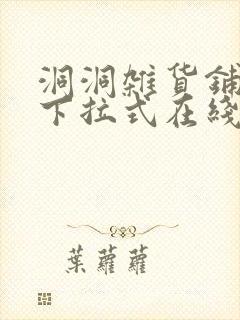 洞洞雜貨鋪
下拉式在綫
葉蘿蘿